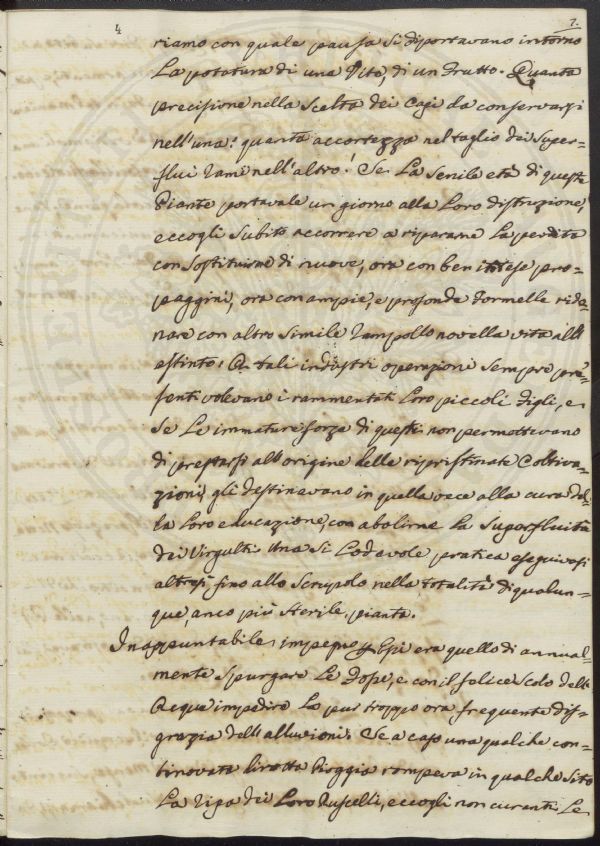 4
7.
riamo con quale pausa si diportavano intorno
La potatura di una Vite, di un frutto. Quanta
precisione nella Scelta dei Capi da conservarsi
nell'una! quanta accortezza nel taglio dei Super=
flui rami nell'altro! Se La Senile età di queste
Piante portavale un giorno alla Loro distruzione,
eccogli Subito accorrere a ripararne La perdita
con Sostituirne di nuove, ora con ben intese pro=
paggini, ora con ampie, e profonde formelle rido=
nare con altro Simile rampollo novella vita all'
estinto. A tali industri operazioni Sempre pre=
senti volevano i rammentati Loro piccoli figli, e
Se Le immature forze di questi non permettevano
di prestarsi all'origine delle ripristinate Coltiva=
zioni, gli destinavano in quella vece alla cura del=
la Loro educazione, con abolirne La Superfluità
dei Virgulti. Una Si Lodevole pratica eseguivasi
altresì fino allo Scrupolo nella totalità di qualun=
que, anco più Sterile, pianta.
Inappuntabile impegno d'Essi era quello di annual=
mente Spurgare Le fosse, e con il felice Scolo delle
Acque impedire La pur troppo ora frequente dis=
grazia dell'alluvioni. Se a caso una qualche con=
tinovata dirotta Pioggia rompeva in qualche Sito
La ripa dei Loro Ruscelli, eccogli non curanti Le